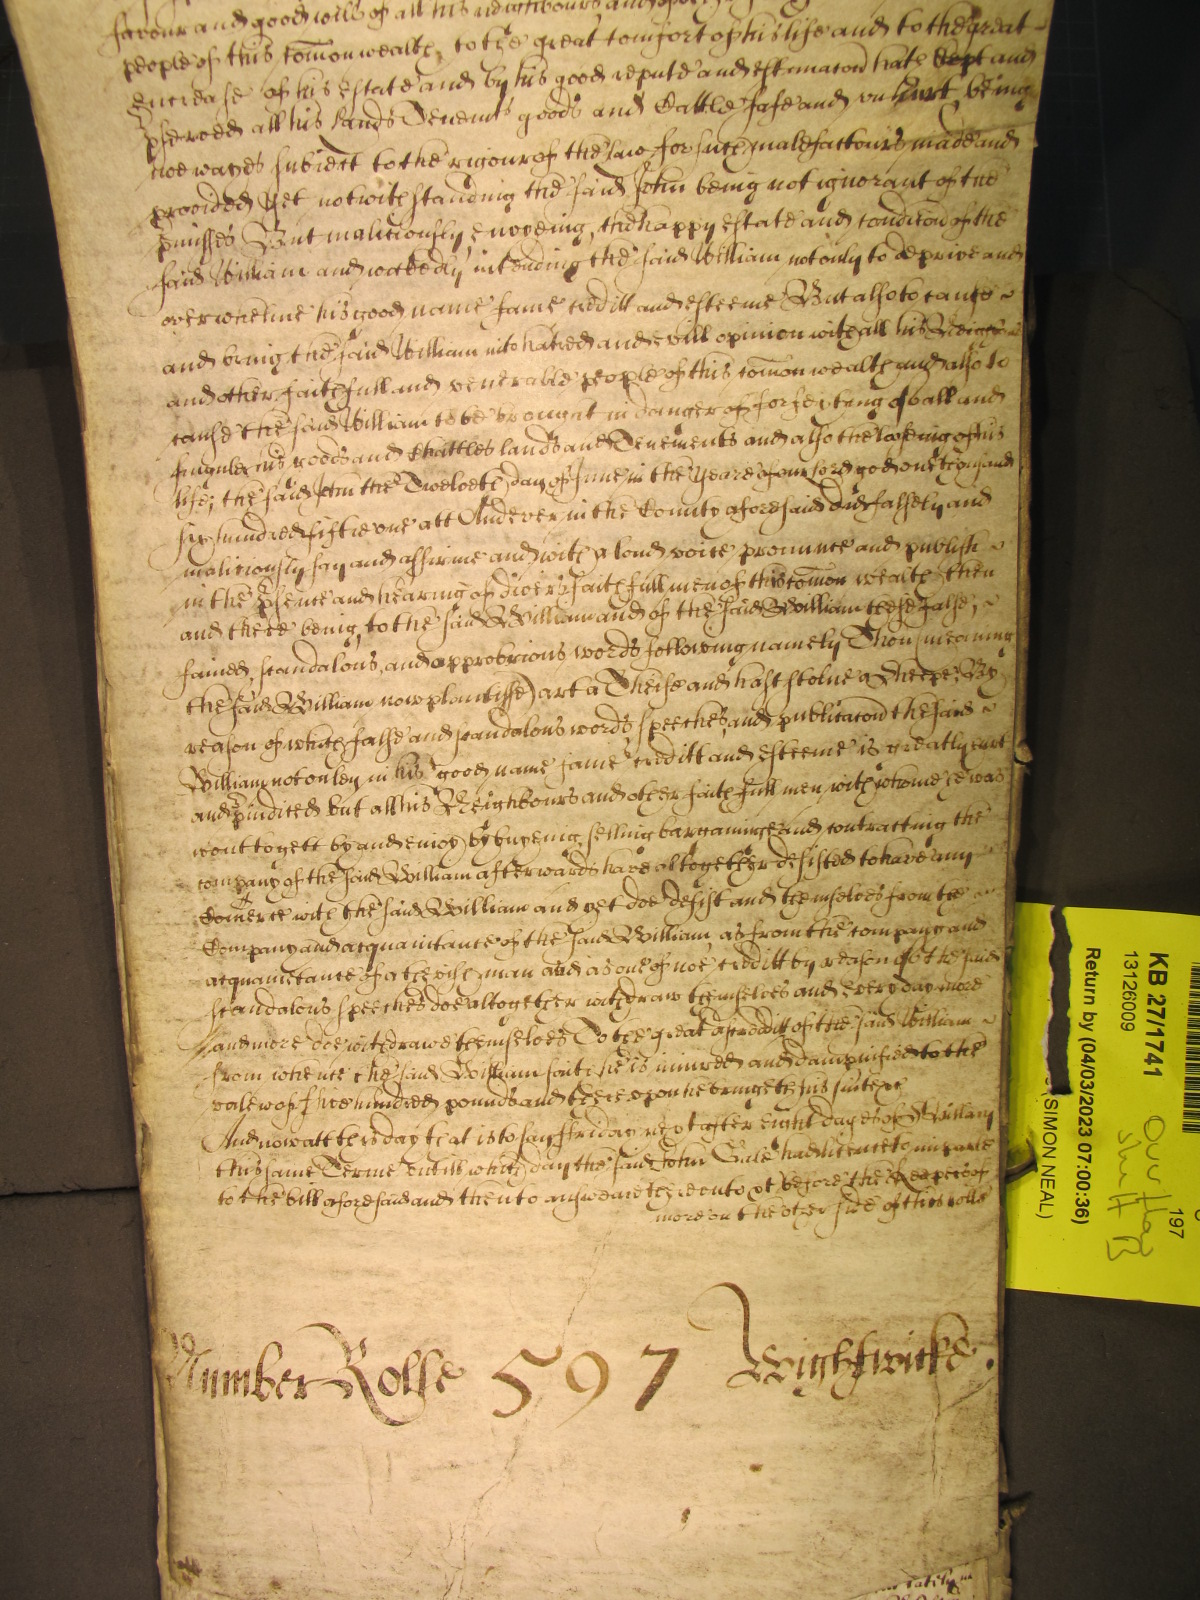 favour and good will of all his neighbours and other
people of this Com̃onwealth, to the great comfort of his life and to the great
encrease of his estate and by his good repute and estimacon hath kept and
pserved all his lands Tenemts goods and Cattle safe and unhurt being
noe wayes subiect to the rigour of the law for such malefactours made and
provided Yet notwithstanding the said John being not ignorant of the
pmisses But maliciously envyeing the happy estate and condicon of the
said William and wickedly intending the said William not only to deprive and
overwhelme his good name fame creditt and esteeme But also to cause
and bring the said William into hatred and evill opinion with all his Neighbours
and other faithfull and venerable people of this Com̃onwealth and also to
cause the said William to be brought in danger of forfeyting of all and
singuler his goods and Chattles lands and Tenements and also the looseing of his
life; the said John the Twelveth day of June in the yeare of our lord god one thousand
six hundred fiftie one att Andever in the County aforesaid did falsely and
maliciously say and affirme and with a loud voice pronunce and publish
in the psence and hearing of divers faithfull men of this Com̃on wealth then
and there being, to the said William and of the said William these false,
fained, scandalous, and opprobrious words following namely Thou (meaning
the said William now plaintiffe) art a Theife and hast stolne a sheepe; By
reason of which false and scandalous words speeches, and publicacon the said
William not onley in his good name fame creditt and esteeme is greatly hurt
and piudiced but all his Neighbours and other faithfull men with whome he was
wont to gett by and enioy by buyeing, selling bargaininge and contracting the
company of the said William afterwards have altogether desisted to have any
Comerce with the said William and yet doe desist and themselves from the
Company and acquaintance of the said William as from the company and
acquaintance of a thevish man and as one of noe creditt by reason of the said
scandalous speeches doe altogether withdraw themselves and every day more
and more doe withdrawe themselves To the great discreditt of the said William
from whence the said William saith he is iniured and damnified to the
valew of five hundred pounds and thereupon he bringeth his suite &c
And now att this day that is to say ffriday next after eight dayes of St Hillary
this same Terme untill which day the said John Gale had licence to imparle
to the bill aforesaid and then to answeare thereunto &c before the Keepers of
more on the other side of this rolle
Number Rolle 597 Wightwicke.
KB 27/1741
13126009
Return by (04/03/2023 07:00:36)
(SIMON NEAL)
197